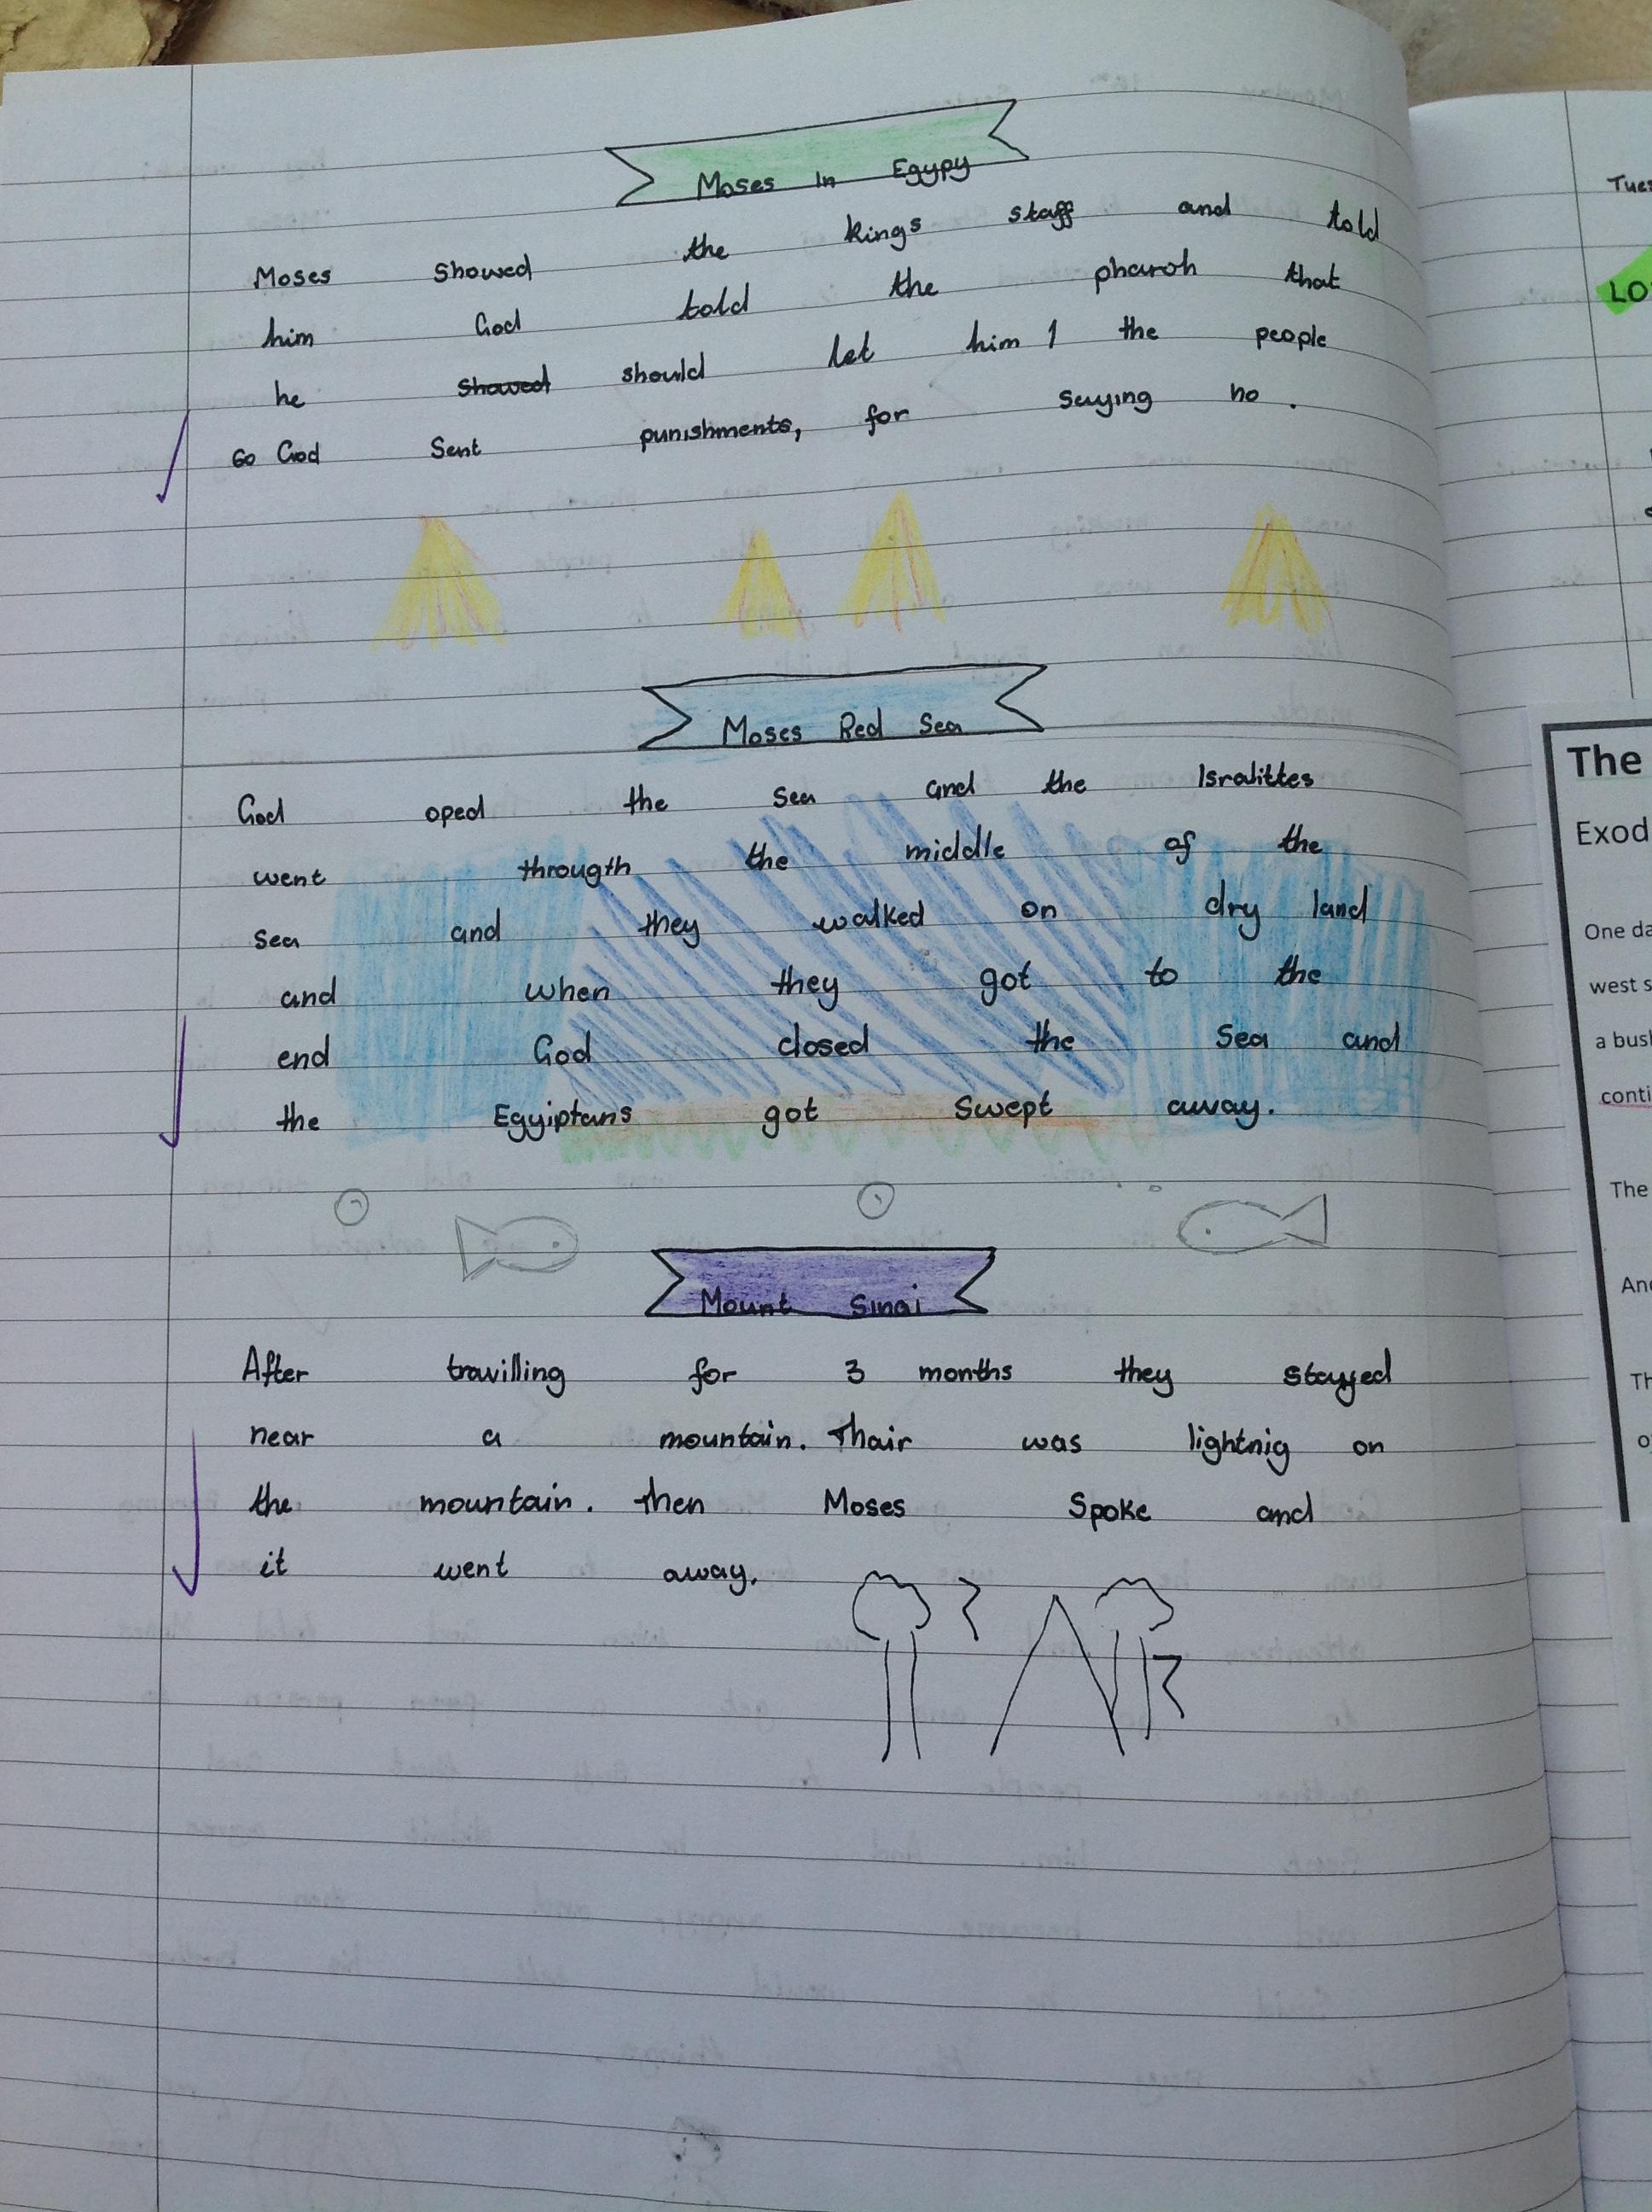 Moses In Egypy
Moses showed the kings staff and told
him God told the pharoh that
he showed should let him 1 the people
Go God Sent punishments, for saying no.
Moses Red Sea
God oped the Sea and the Isralittes
went througth the middle of the
sea and they walked on dry land
and when they got to the
end God closed the Sea and
the Egyiptans got Swept away.
Mount Sinai
After travilling for 3 months they stayed
near a mountain. Thair was lightnig on
the mountain. Then Moses Spoke and
it went away.
Tues
LO
The
Exod
One da
west s
a bus
conti
The
And
Th